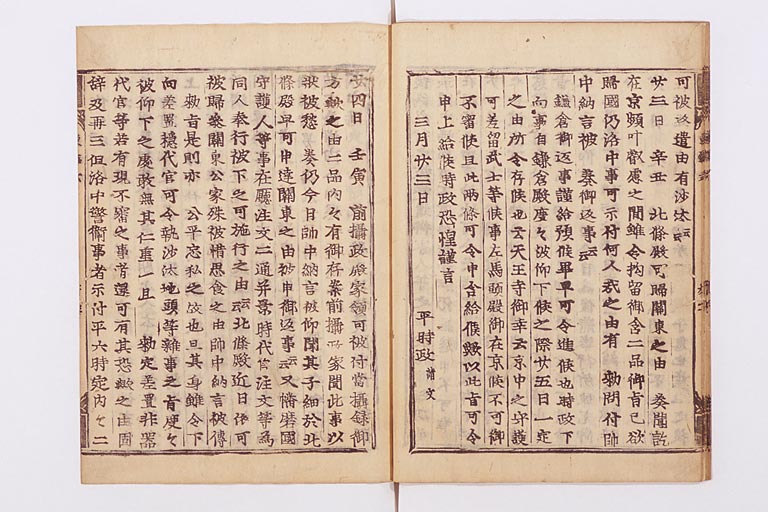 可被遂遣由有沙汰云云
廿三日 辛丑 北條殿可歸關東之由 奏聞訖
在京頻叶叡慮之間雖令拘留御含二品御旨已欲
歸國仍洛中事可示付何人哉之由有 勅問付帥
中納言被 奏御返事云云
鎌倉御返事謹給預候畢早可令進候也時政下
向事自鎌倉殿度々被仰下候之際廿五日一定
之由所令存候也云天王寺御幸云京中之守護
可差留武士等候事左馬頭殿御在京候不可御
不審候且此兩條可令申含給候歟以此旨可令
申上給候時政恐惶謹言
三月廿三日 平時政 請文
廿四日 壬寅 前攝政殿家領可被付當攝録御
方歟之由二品内々有御存案前攝政家聞此事以
狀被愁 奏仍今日帥中納言被仰聞其子細於北
條殿早可申達關東之由被申御返事云云又播磨國
守護人等事在廳注文二通并景時代官注文等爲
同人奉行被下之可施行之由云云北條殿近日依可
被歸參關東公家殊被惜思食之由帥中納言被傳
上 勅旨是則亦 公平忘私之故也且其身雖令下
向差置穩代官可令執沙汰地頭等雜事之旨度々
被仰下之處敢無其仁重一旦 勅定差置非器
代官等若有現不審之事者還可有其恐歟之由固
辞及再三但洛中警衞事者示付平六時定内々二